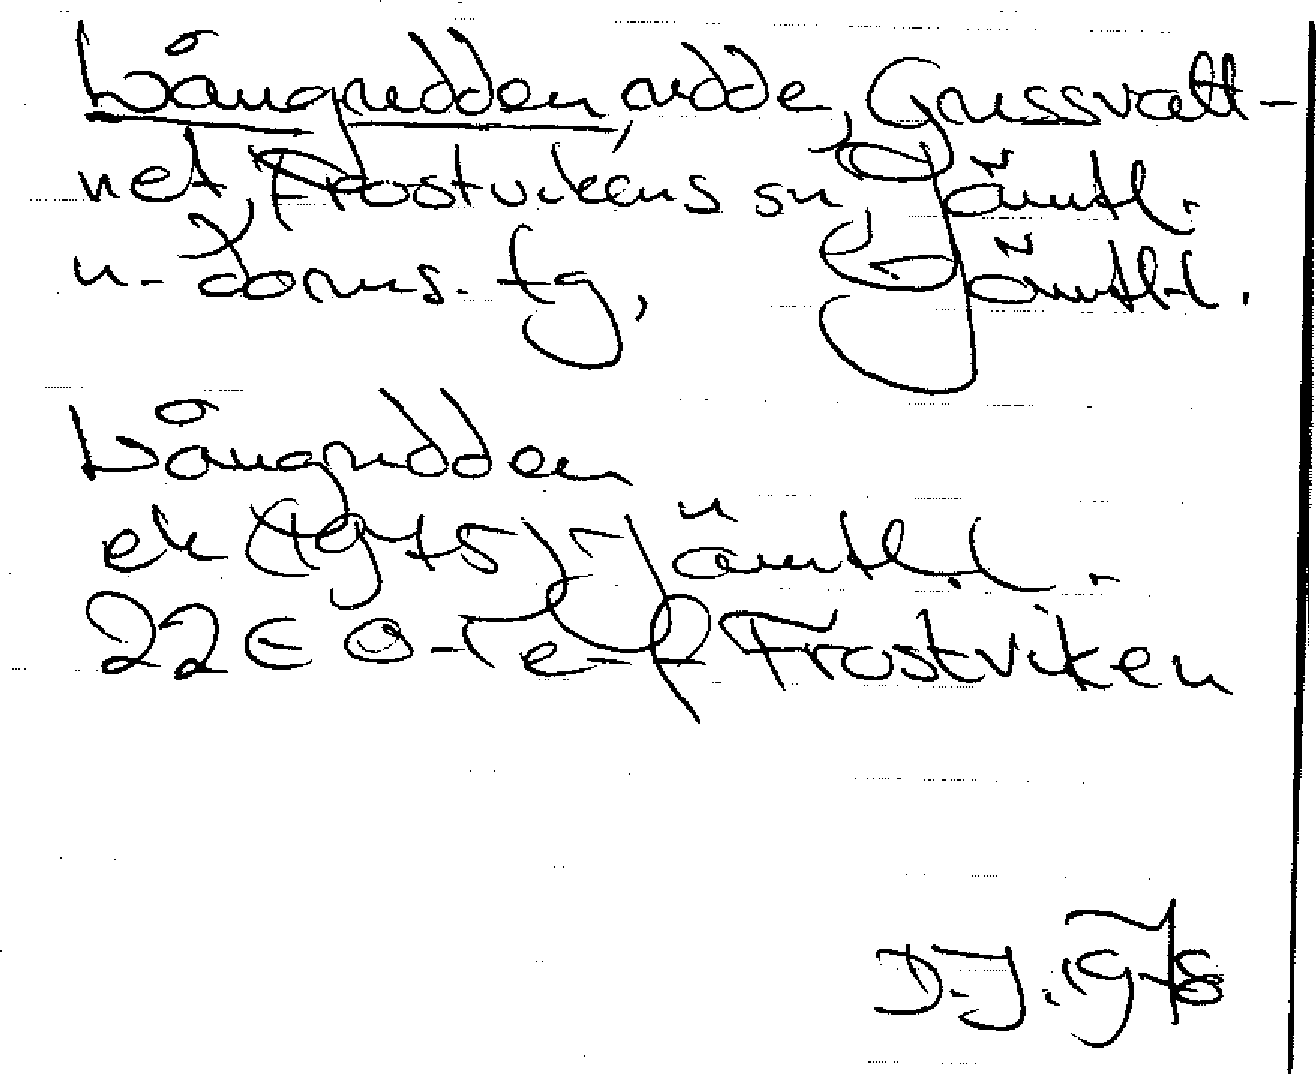 Långrudden udde, Grussvatt-
net, Frostvikens sn, Jämtl.
n. doms. tg, Jämtl.l.
Långrudden
ek (1975) Jämtl.l.
22E 0-1 e-f Frostviken
D.J. 1978